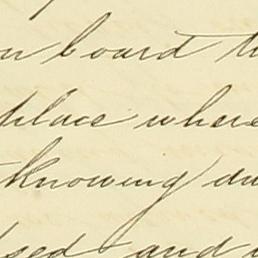 on board th
place where
knowing
sed and